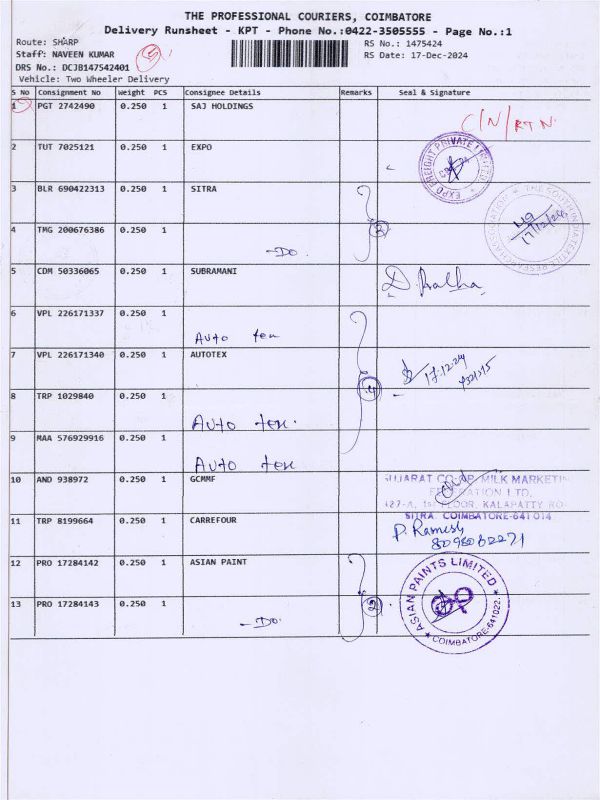 THE PROFESSIONAL COURIERS, COIMBATORE
Delivery Runsheet - KPT - Phone No.:0422-3505555 - Page No.:1
Route: SHARP
RS No.: 1475424
Staff: NAVEEN KUMAR
RS Date: 17-Dec-2024
DRS No.: DCJB147542401
Vehicle: Two Wheeler Delivery
S No Consignment No Weight PCS Consignee Details Remarks Seal & Signature
1 PGT 2742490 0.250 1 SAJ HOLDINGS
C/N/RTN
2 TUT 7025121 0.250 1 EXPO
EXPO FREIGHT PRIVATE LIMITED
3 BLR 690422313 0.250 1 SITRA
THE SOUTH INDIA TEXTILE RESEARCH ASSOCIATION
17/12/24
4 TMG 200676386 0.250 1
-Do. 2
5 CDM 50336065 0.250 1 SUBRAMANI
6 VPL 226171337 0.250 1
Auto tex
7 VPL 226171340 0.250 1 AUTOTEX
17.12.24
8 TRP 1029840 0.250 1
4
Auto tex.
9 MAA 576929916 0.250 1
Auto tex
10 AND 938972 0.250 1 GCMMF
GUJARAT CO-OP. MILK MARKETIN
FEDERATION LTD.
127-A, 1st FLOOR, KALAPATTY RO
SITRA COIMBATORE-641 014
11 TRP 8199664 0.250 1 CARREFOUR
P. Ramesh
8098062271
12 PRO 17284142 0.250 1 ASIAN PAINT
ASIAN PAINTS LIMITED
COIMBATORE-641022.
13 PRO 17284143 0.250 1
-Do. 2